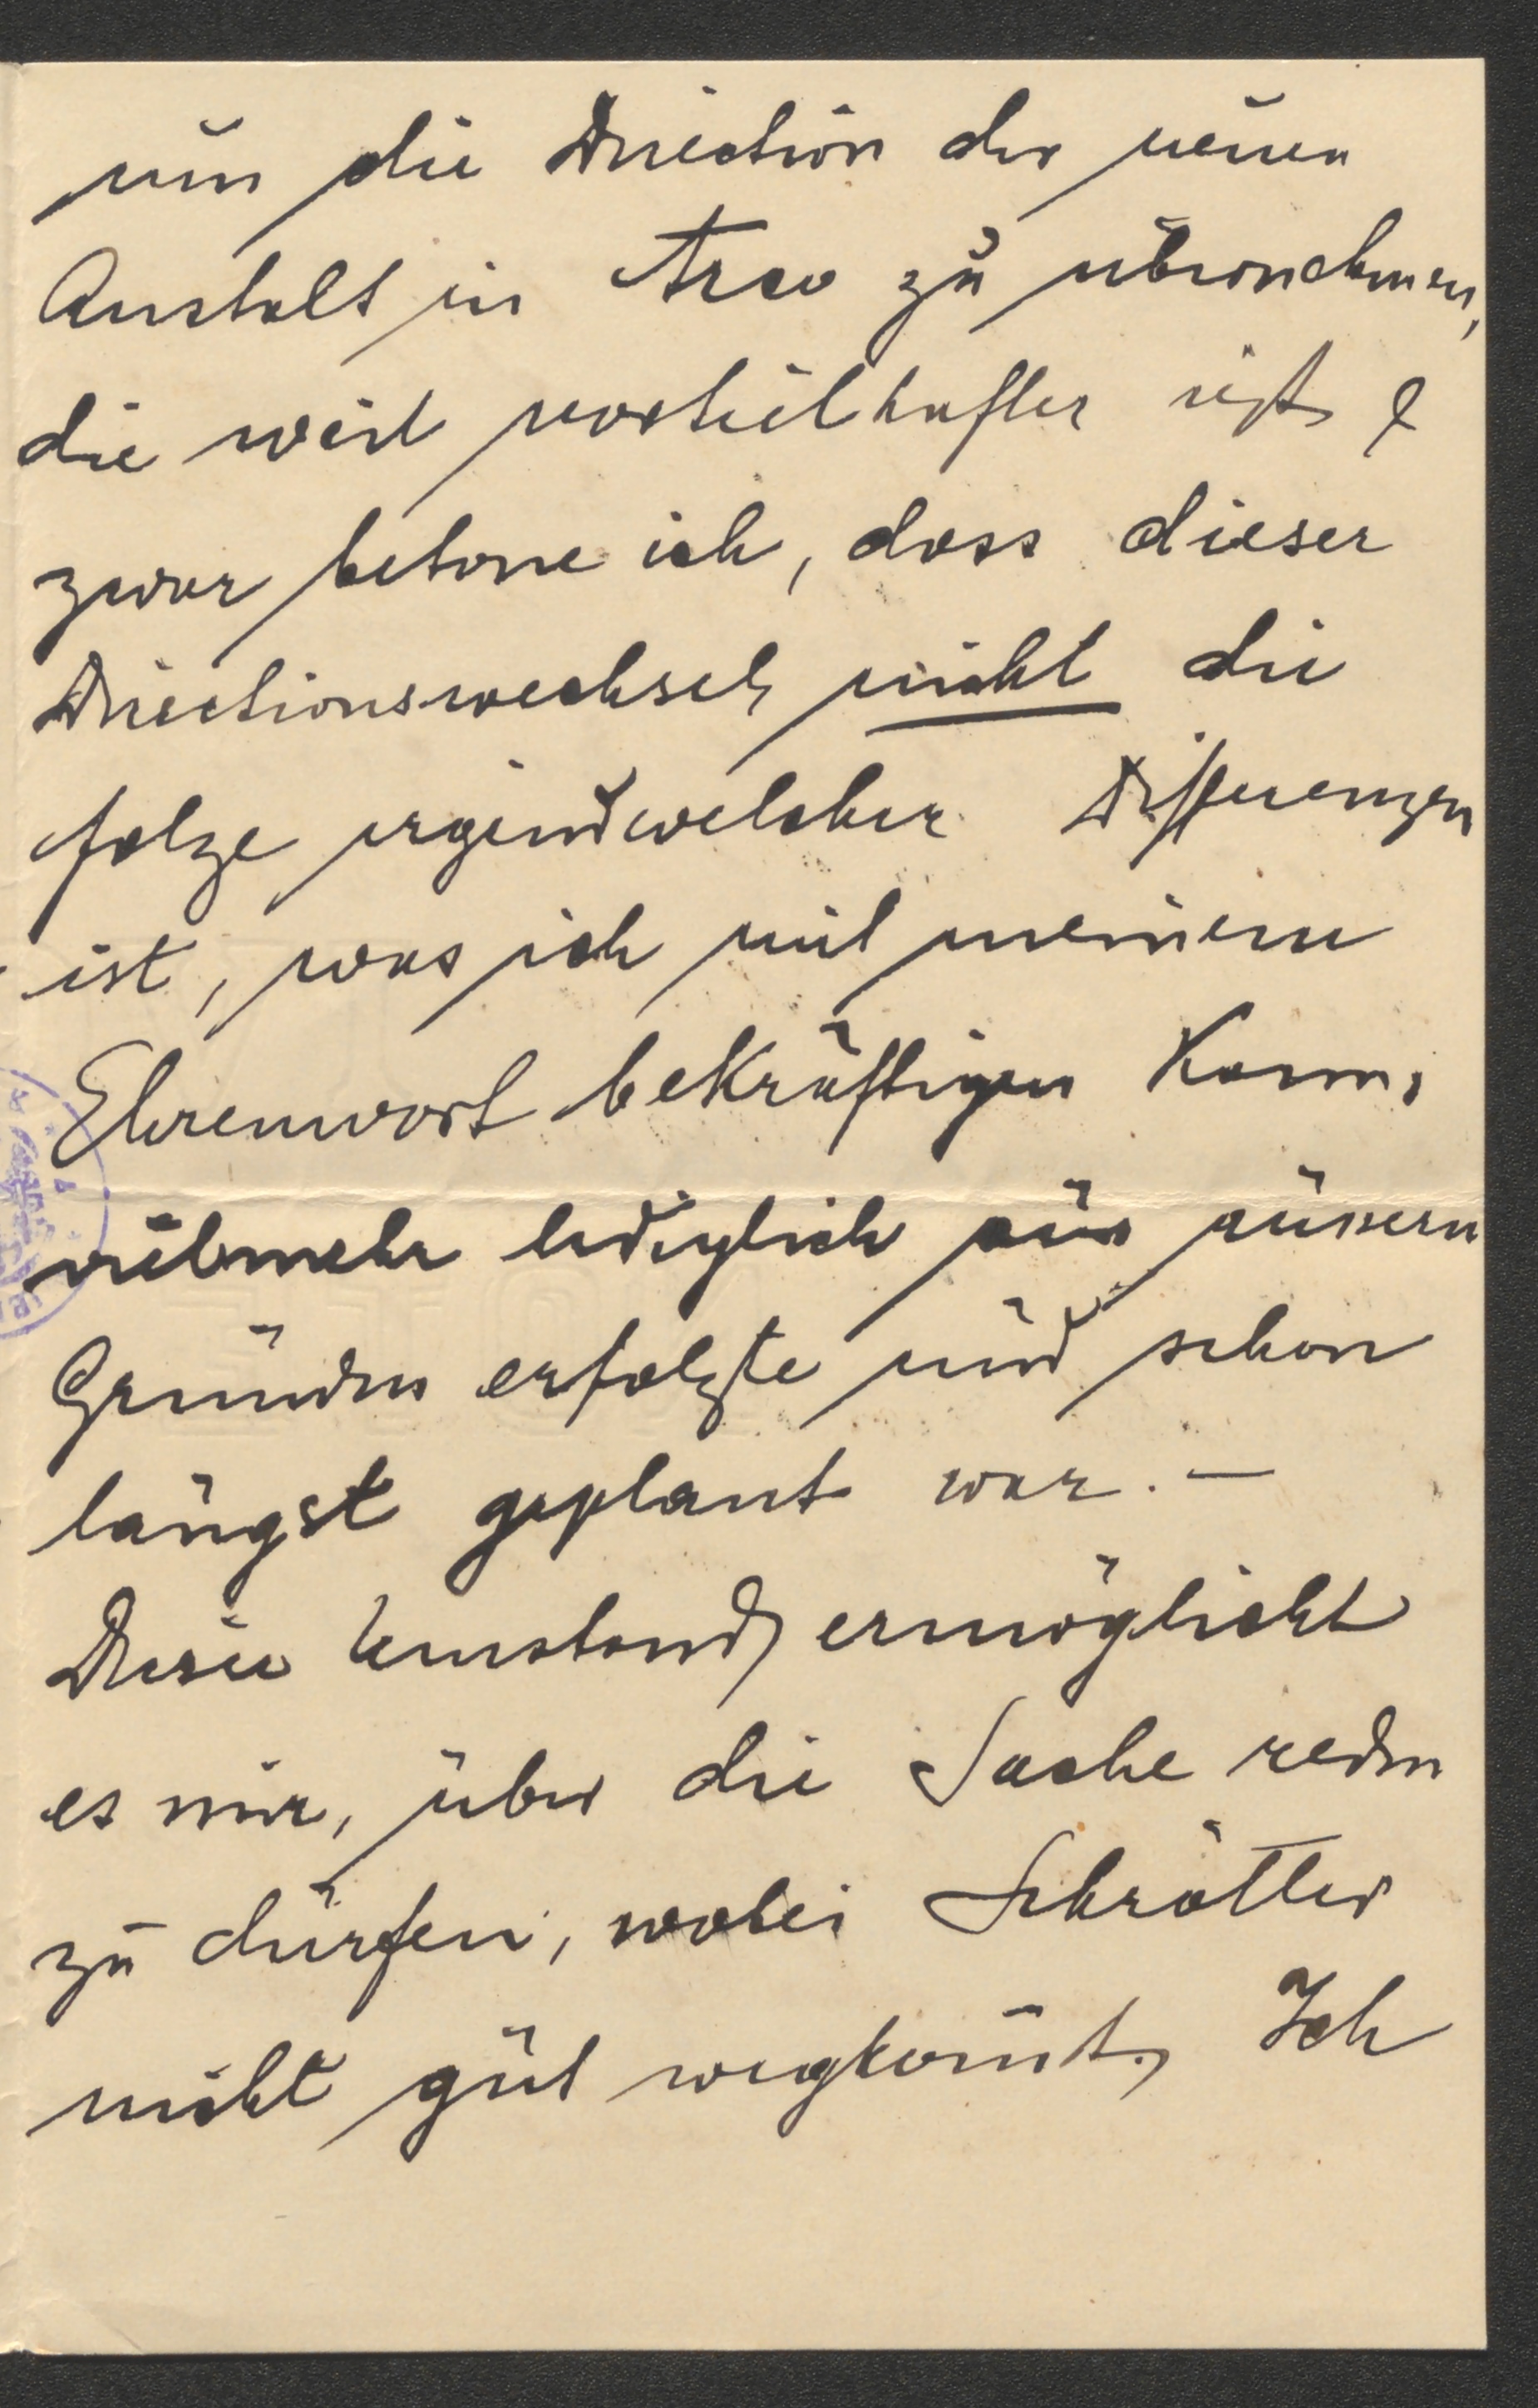 um die Direction der neuen
Anstalt in Arco zu übernehmen,
die weit vorteilhafter ist &
zwar betone ich, dass dieser
Directionswechsel nicht die
Folge irgendwelcher Differenzen
ist, was ich mit meinem
Ehrenwort bekräftigen kann,
vielmehr lediglich aus äussern
Gründen erfolgte und schon
längst geplant war. —
Dieser Umstand ermöglicht
es mir, über die Sache reden
zu dürfen, wobei Schrötter
nicht gut wegkom̄t. Ich